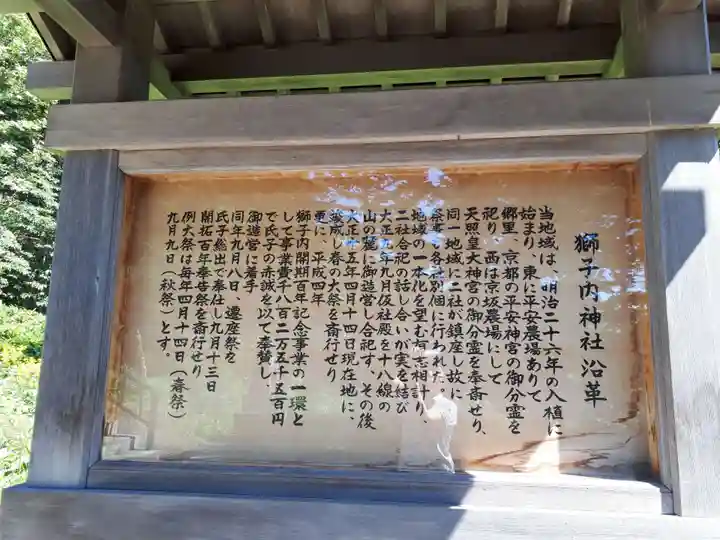 獅子内神社沿革
当地域は、明治二十六年の入植に
始まり、東に平安農場ありて
郷里、京都の平安神宮の御分霊を
祀り、西は京坂農場にして
天照皇大神宮の御分霊を奉斎せり、
同一地域に二社が鎮座し故に
祭事も各社別個に行われた。
地域の一本化を望む有志相計り、
二社合祀の話し合いが実を結び
大正九年九月仮社殿を十八線の
山の麓に御造営し合祀す、その後
大正十五年四月十四日現在地に、
竣成し春の大祭を斎行せり
更に、平成四年
獅子内開期百年記念事業の一環と
して事業費千八百二万五千五百円
で氏子の赤誠を以て奉賛し、
御造営に着手
同年九月八日、遷座祭を
氏子総出で奉仕し九月十三日
開拓百年奉告祭を斎行せり
例大祭は毎年四月十四日（春祭）
九月九日（秋祭）とす。